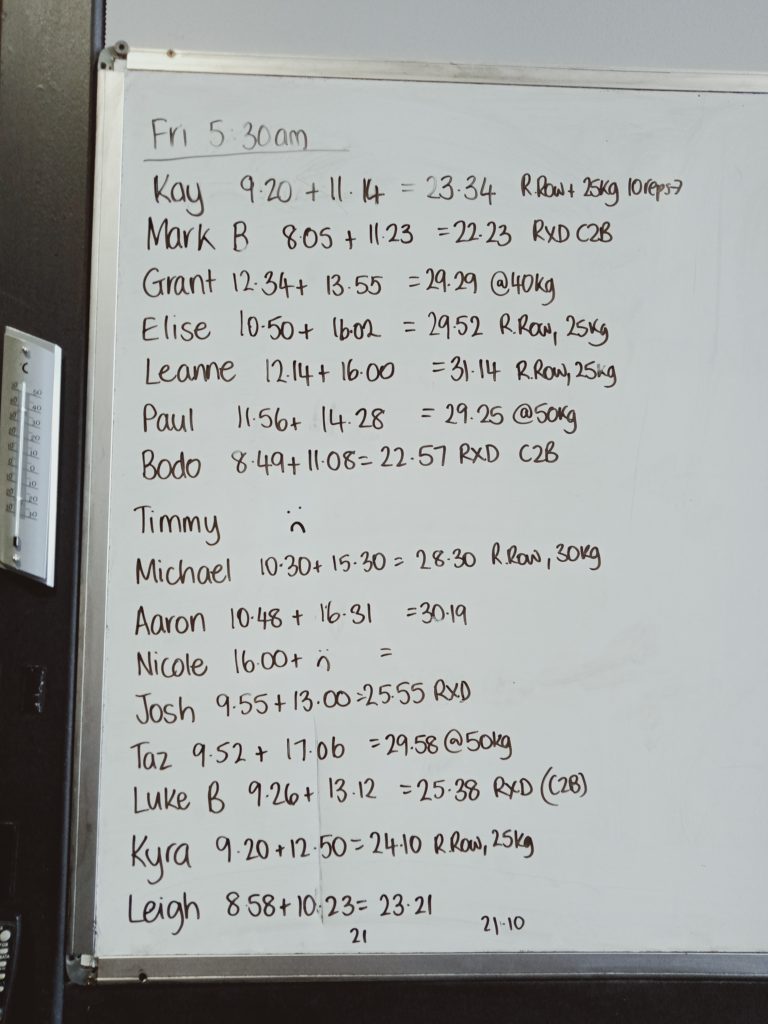 Fri 5:30am
Kay 9.20 + 11.14 = 23.34 R.Row + 25kg 10reps→
Mark B 8.05 + 11.23 = 22.23 RXD C2B
Grant 12.34 + 13.55 = 29.29 @40kg
Elise 10.50 + 16.02 = 29.52 R.Row, 25kg
Leanne 12.14 + 16.00 = 31.14 R.Row, 25kg
Paul 11.56 + 14.28 = 29.25 @50kg
Bodo 8.49 + 11.08 = 22.57 RXD C2B
Timmy :(
Michael 10.30 + 15.30 = 28.30 R.Row, 30kg
Aaron 10.48 + 16.31 = 30.19
Nicole 16.00 + :( =
Josh 9.55 + 13.00 = 25.55 RXD
Taz 9.52 + 17.06 = 29.58 @50kg
Luke B 9.26 + 13.12 = 25.38 RXD (C2B)
Kyra 9.20 + 12.50 = 24.10 R.Row, 25kg
Leigh 8.58 + 10.23 = 23.21
21 21.10